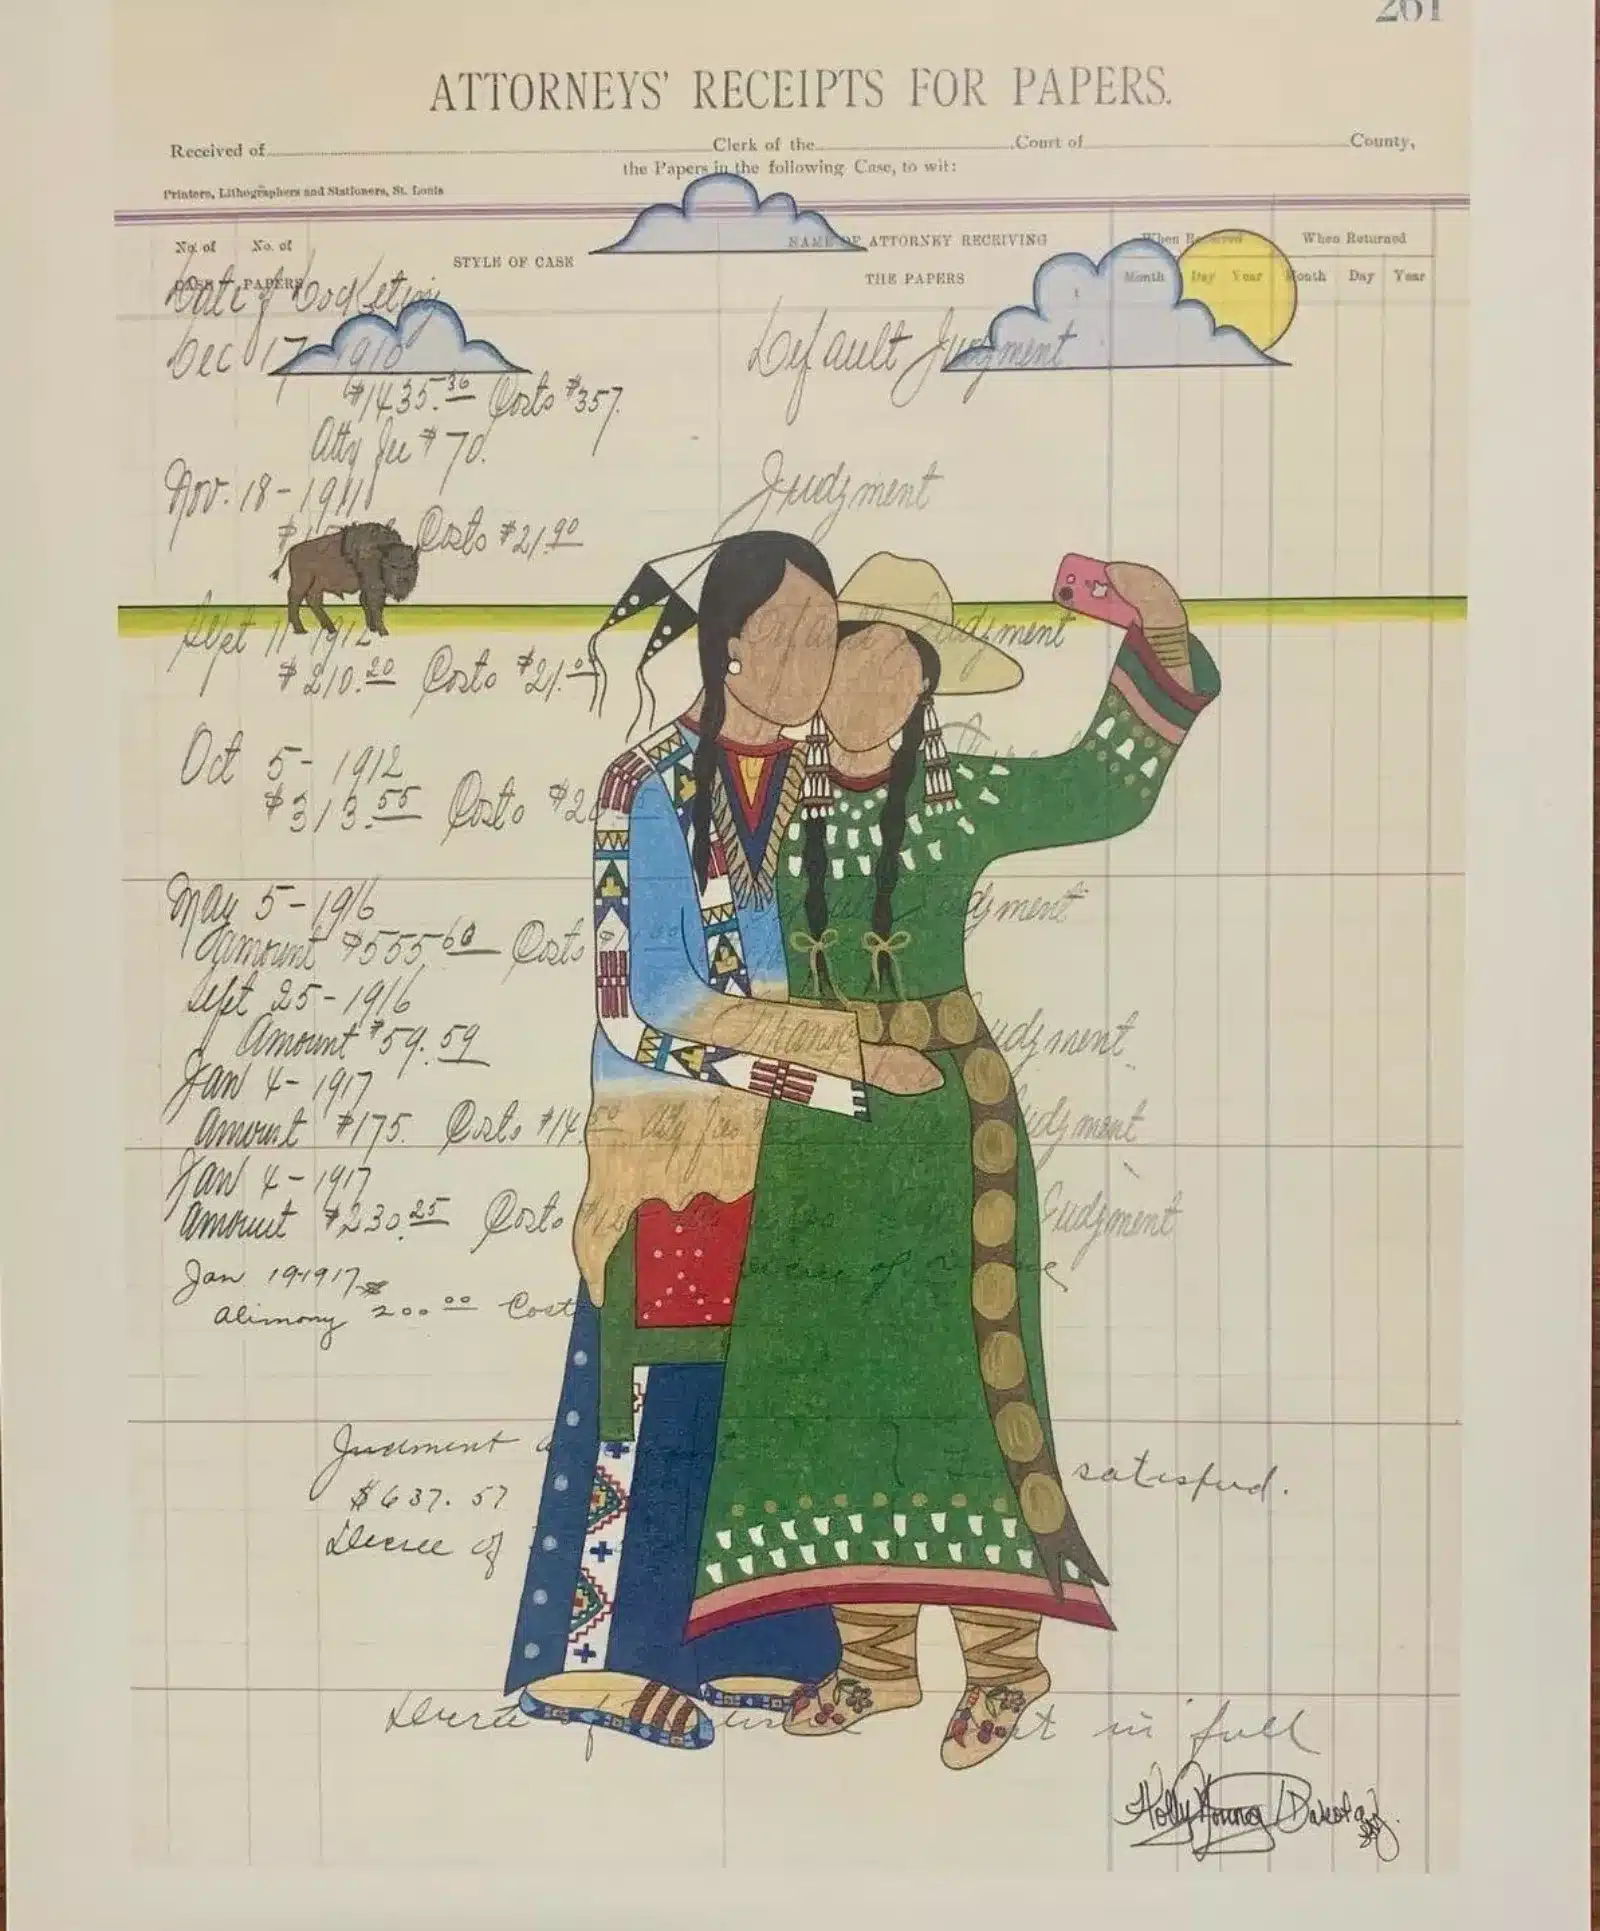 261
ATTORNEYS' RECEIPTS FOR PAPERS.
Received of Clerk of the Court of County,
the Papers in the following Case, to wit:
Printers, Lithographers and Stationers, St. Louis
No. of No. of STYLE OF CASE NAME OF ATTORNEY RECEIVING When Received When Returned
CASE PAPERS THE PAPERS Month Day Year Month Day Year
Date of Docketing
Dec 17 1910 Default Judgment
$1435.36 Costs $357.
Atty Fee $70.
Nov. 18-1911 Judgment
Costs $21.90
Sept 11 1912 Default Judgment
$210.20 Costs $21.
Oct 5-1912
$313.55 Costs $20
May 5-1916 Judgment
Amount $555.60 Costs
Sept 25-1916 Judgment
Amount $59.59
Jan 4-1917 Judgment
Amount $175. Costs $14.50 Atty fees
Jan 4-1917
Amount $230.25 Costs Judgment
Jan 19-1917
Alimony 200.00 Cost
Judment satisfied.
$637.57
Decree of
in full
Holly Young Dakota